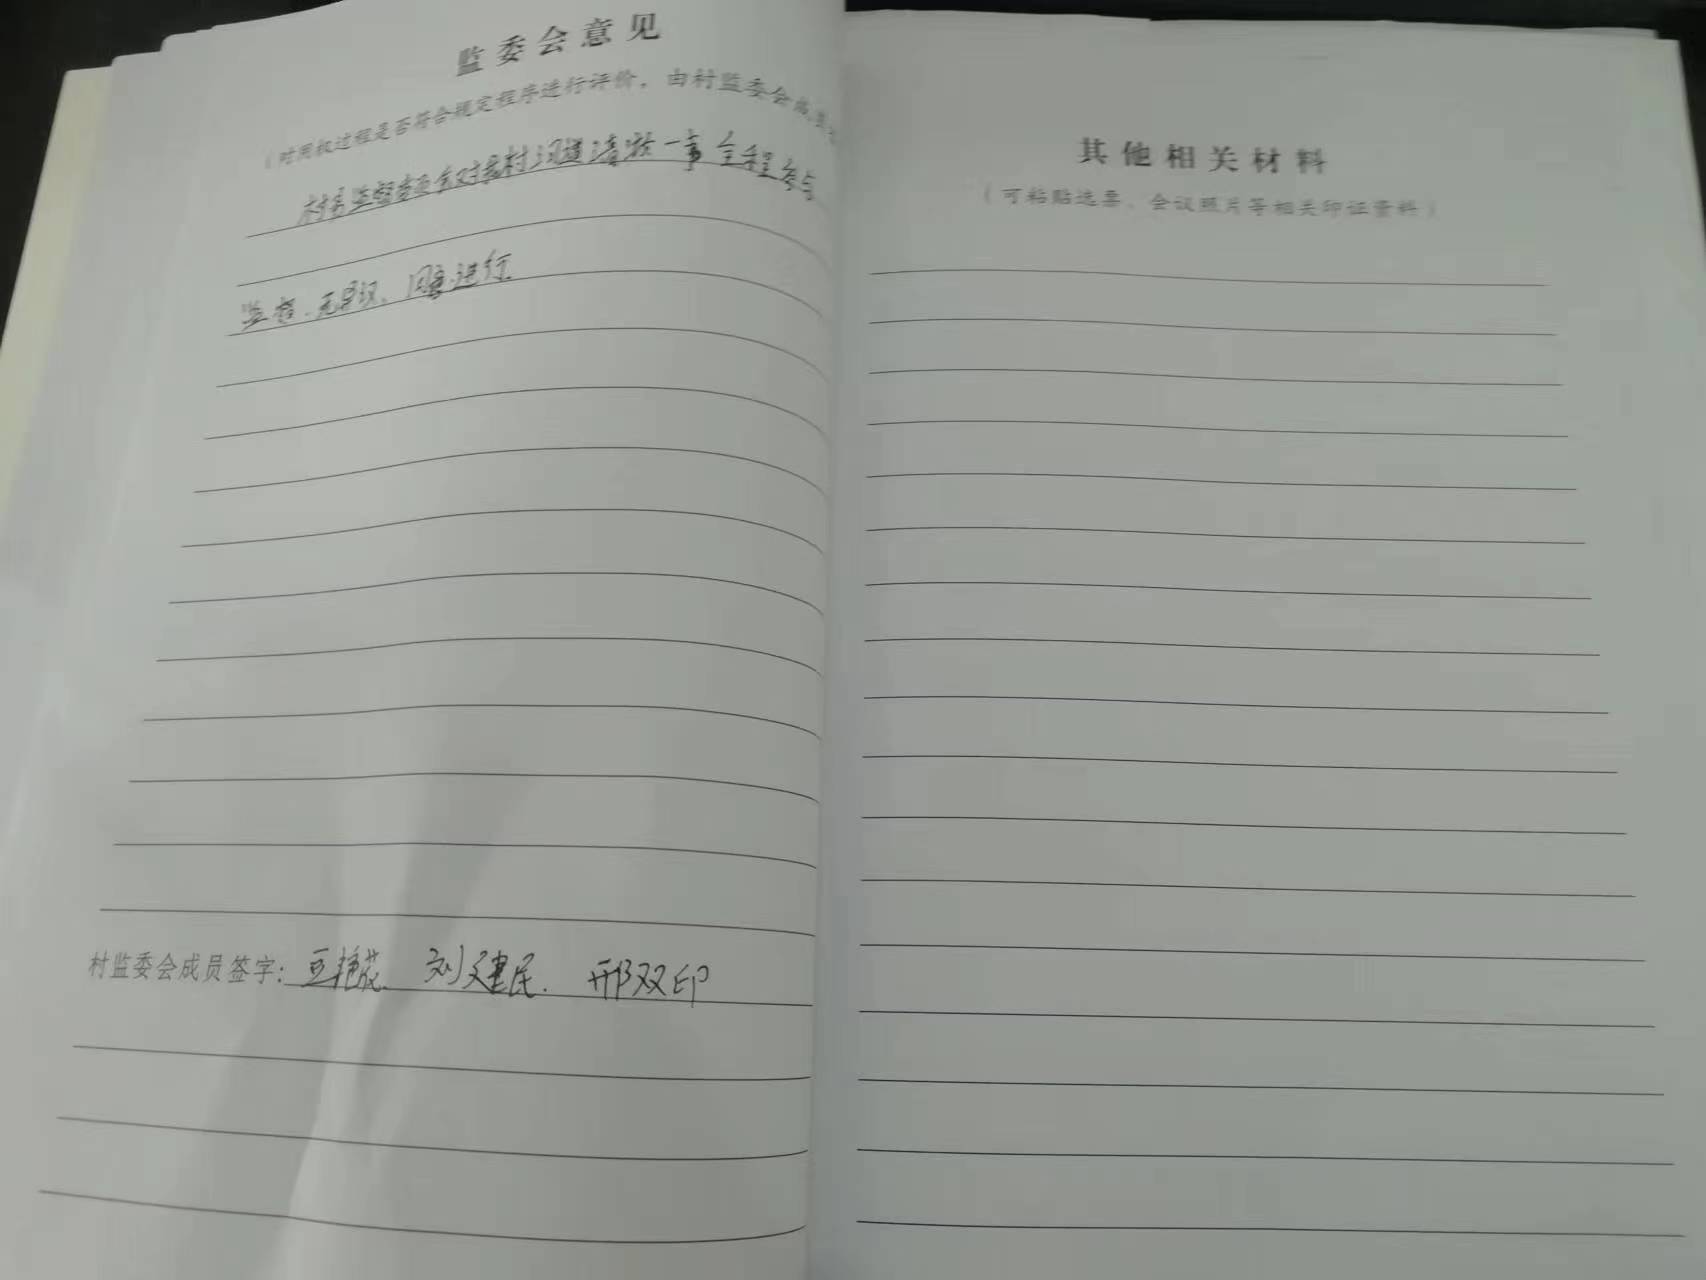 监委会意见
（对用权过程是否符合规定程序进行评价，由村监委会成员
村务监督委员会对我村河道清淤一事全程参与
监督.无异议、同意进行
村监委会成员签字： 刘建民. 邢双印
其他相关材料
（可粘贴选票、会议照片等相关印证资料）